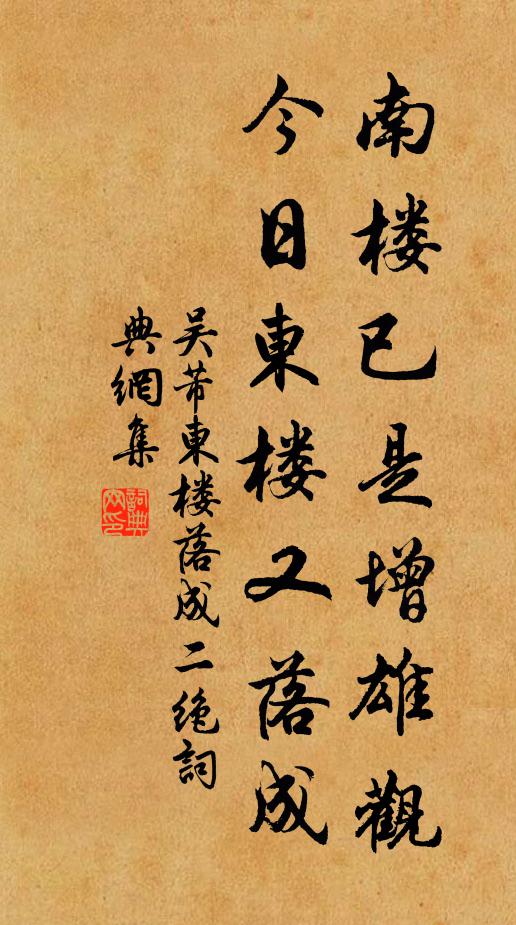 南楼已是增雄觀
今日東楼又落成
吴芾東楼落成二绝詞
典網集
詞典網印